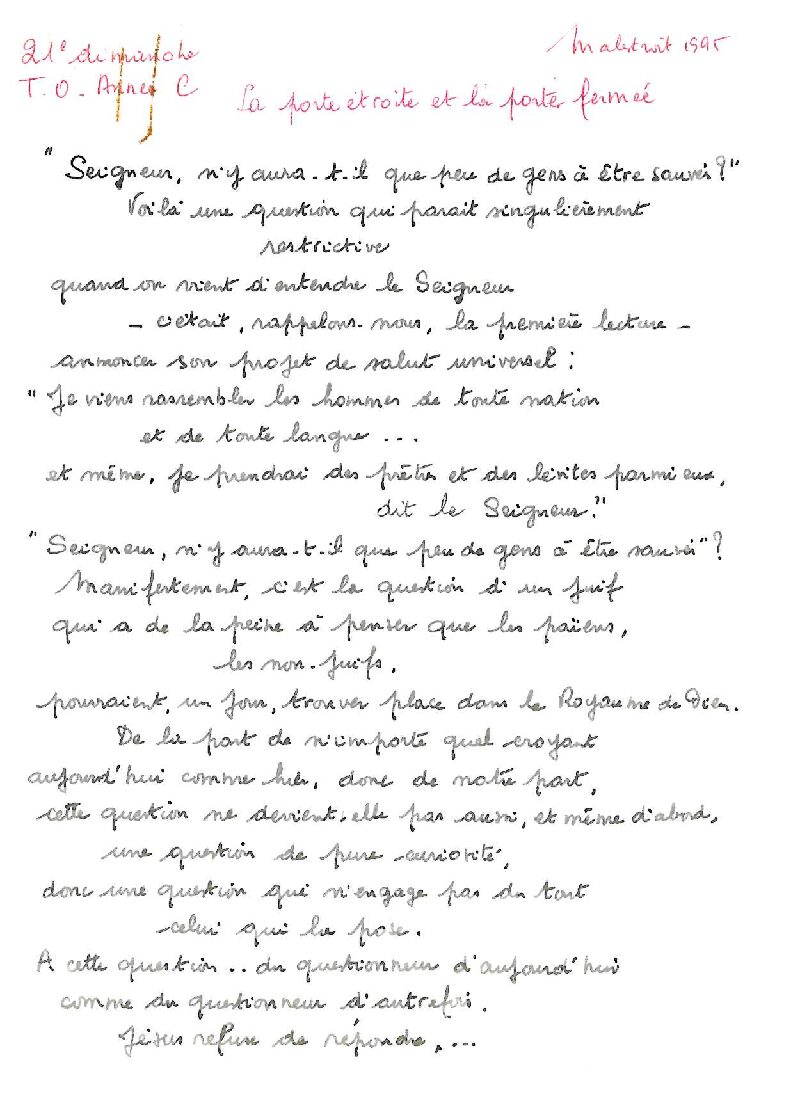 21e dimanche
T.O - Année C
Malestroit 1995
La porte étroite et la porte fermée
"Seigneur, n'y aura-t-il que peu de gens à être sauvés?"
Voilà une question qui parait singulièrement
restrictive
quand on vient d'entendre le Seigneur
- c'était, rappelons-nous, la première lecture -
annoncer son projet de salut universel :
"Je viens rassembler les hommes de toute nation
et de toute langue ...
et même, je prendrai des prêtres et des lévites parmi eux,
dit le Seigneur."
"Seigneur, n'y aura-t-il que peu de gens à être sauvés"?
Manifestement, c'est la question d'un juif
qui a de la peine à penser que les païens,
les non-juifs,
pourraient, un jour, trouver place dans le Royaume de Dieu.
De la part de n'importe quel croyant
aujourd'hui comme hier, donc de notre part,
cette question ne devient-elle pas aussi, et même d'abord,
une question de pure curiosité,
donc une question qui n'engage pas du tout
celui qui la pose.
A cette question .. du questionneur d'aujourd'hui
comme du questionneur d'autrefois.
Jésus refuse de répondre, ...